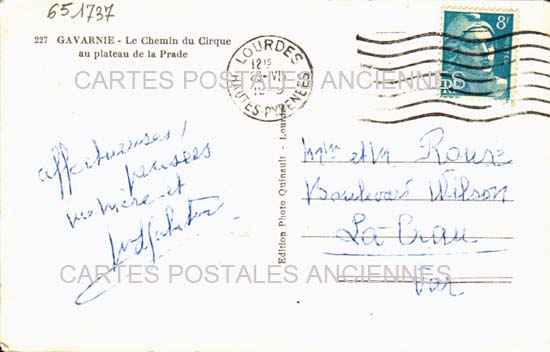 651737
227 GAVARNIE - Le Chemin du Cirque
au plateau de la Prade
LOURDES
12 15
VII
HAUTES-PYRENEES
8F
RF
CARTES POSTALES ANCIENNES
affectueuses
pensées
et
Edition Photo Quinault - Lourdes
Mme et Mr Roux
Boulevard Wilson
La Crau
Var
CARTES POSTALES ANCIENNES